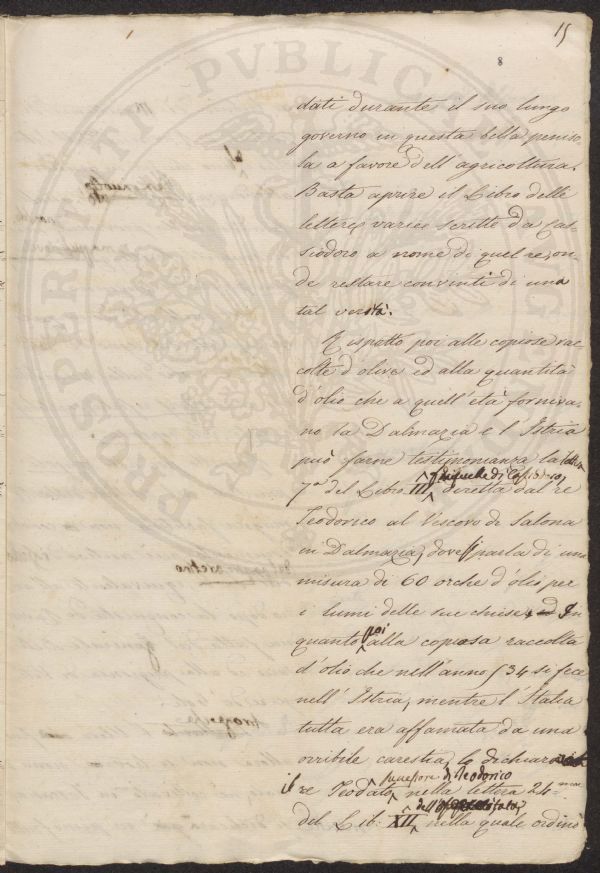 15
8
dati durante il suo lungo
governo in questa bella peniso-
la a favore dell'agricoltura.
Basta aprire il Libro delle
lettere varie scritte da Cas-
siodoro a nome di quel re, on-
de restare convinti di una
tal verità.
Rispetto poi alle copiose rac-
colte d'olive ed alla quantità
d'olio che a quell'età forniva-
no la Dalmazia e l'Istria
può farne testimonianza la lettera
di quelle di Cassiodoro,
7ª del Libro III diretta dal re
Teodorico al Vescovo di Salona
in Dalmazia, dove si parla di una
misura di 60 orche d'olio per
i lumi delle sue chiese. In
quanto poi alla copiosa raccolta
d'olio che nell'anno 534 si fece
nell'Istria, mentre l'Italia
tutta era affamata da una
orribile carestia, lo dichiara
successore di Teodorico
il re Teodato nella lettera 24
del Lib. XII nella quale ordinò
PROSPERITATI PVBLICAE AVGENDAE